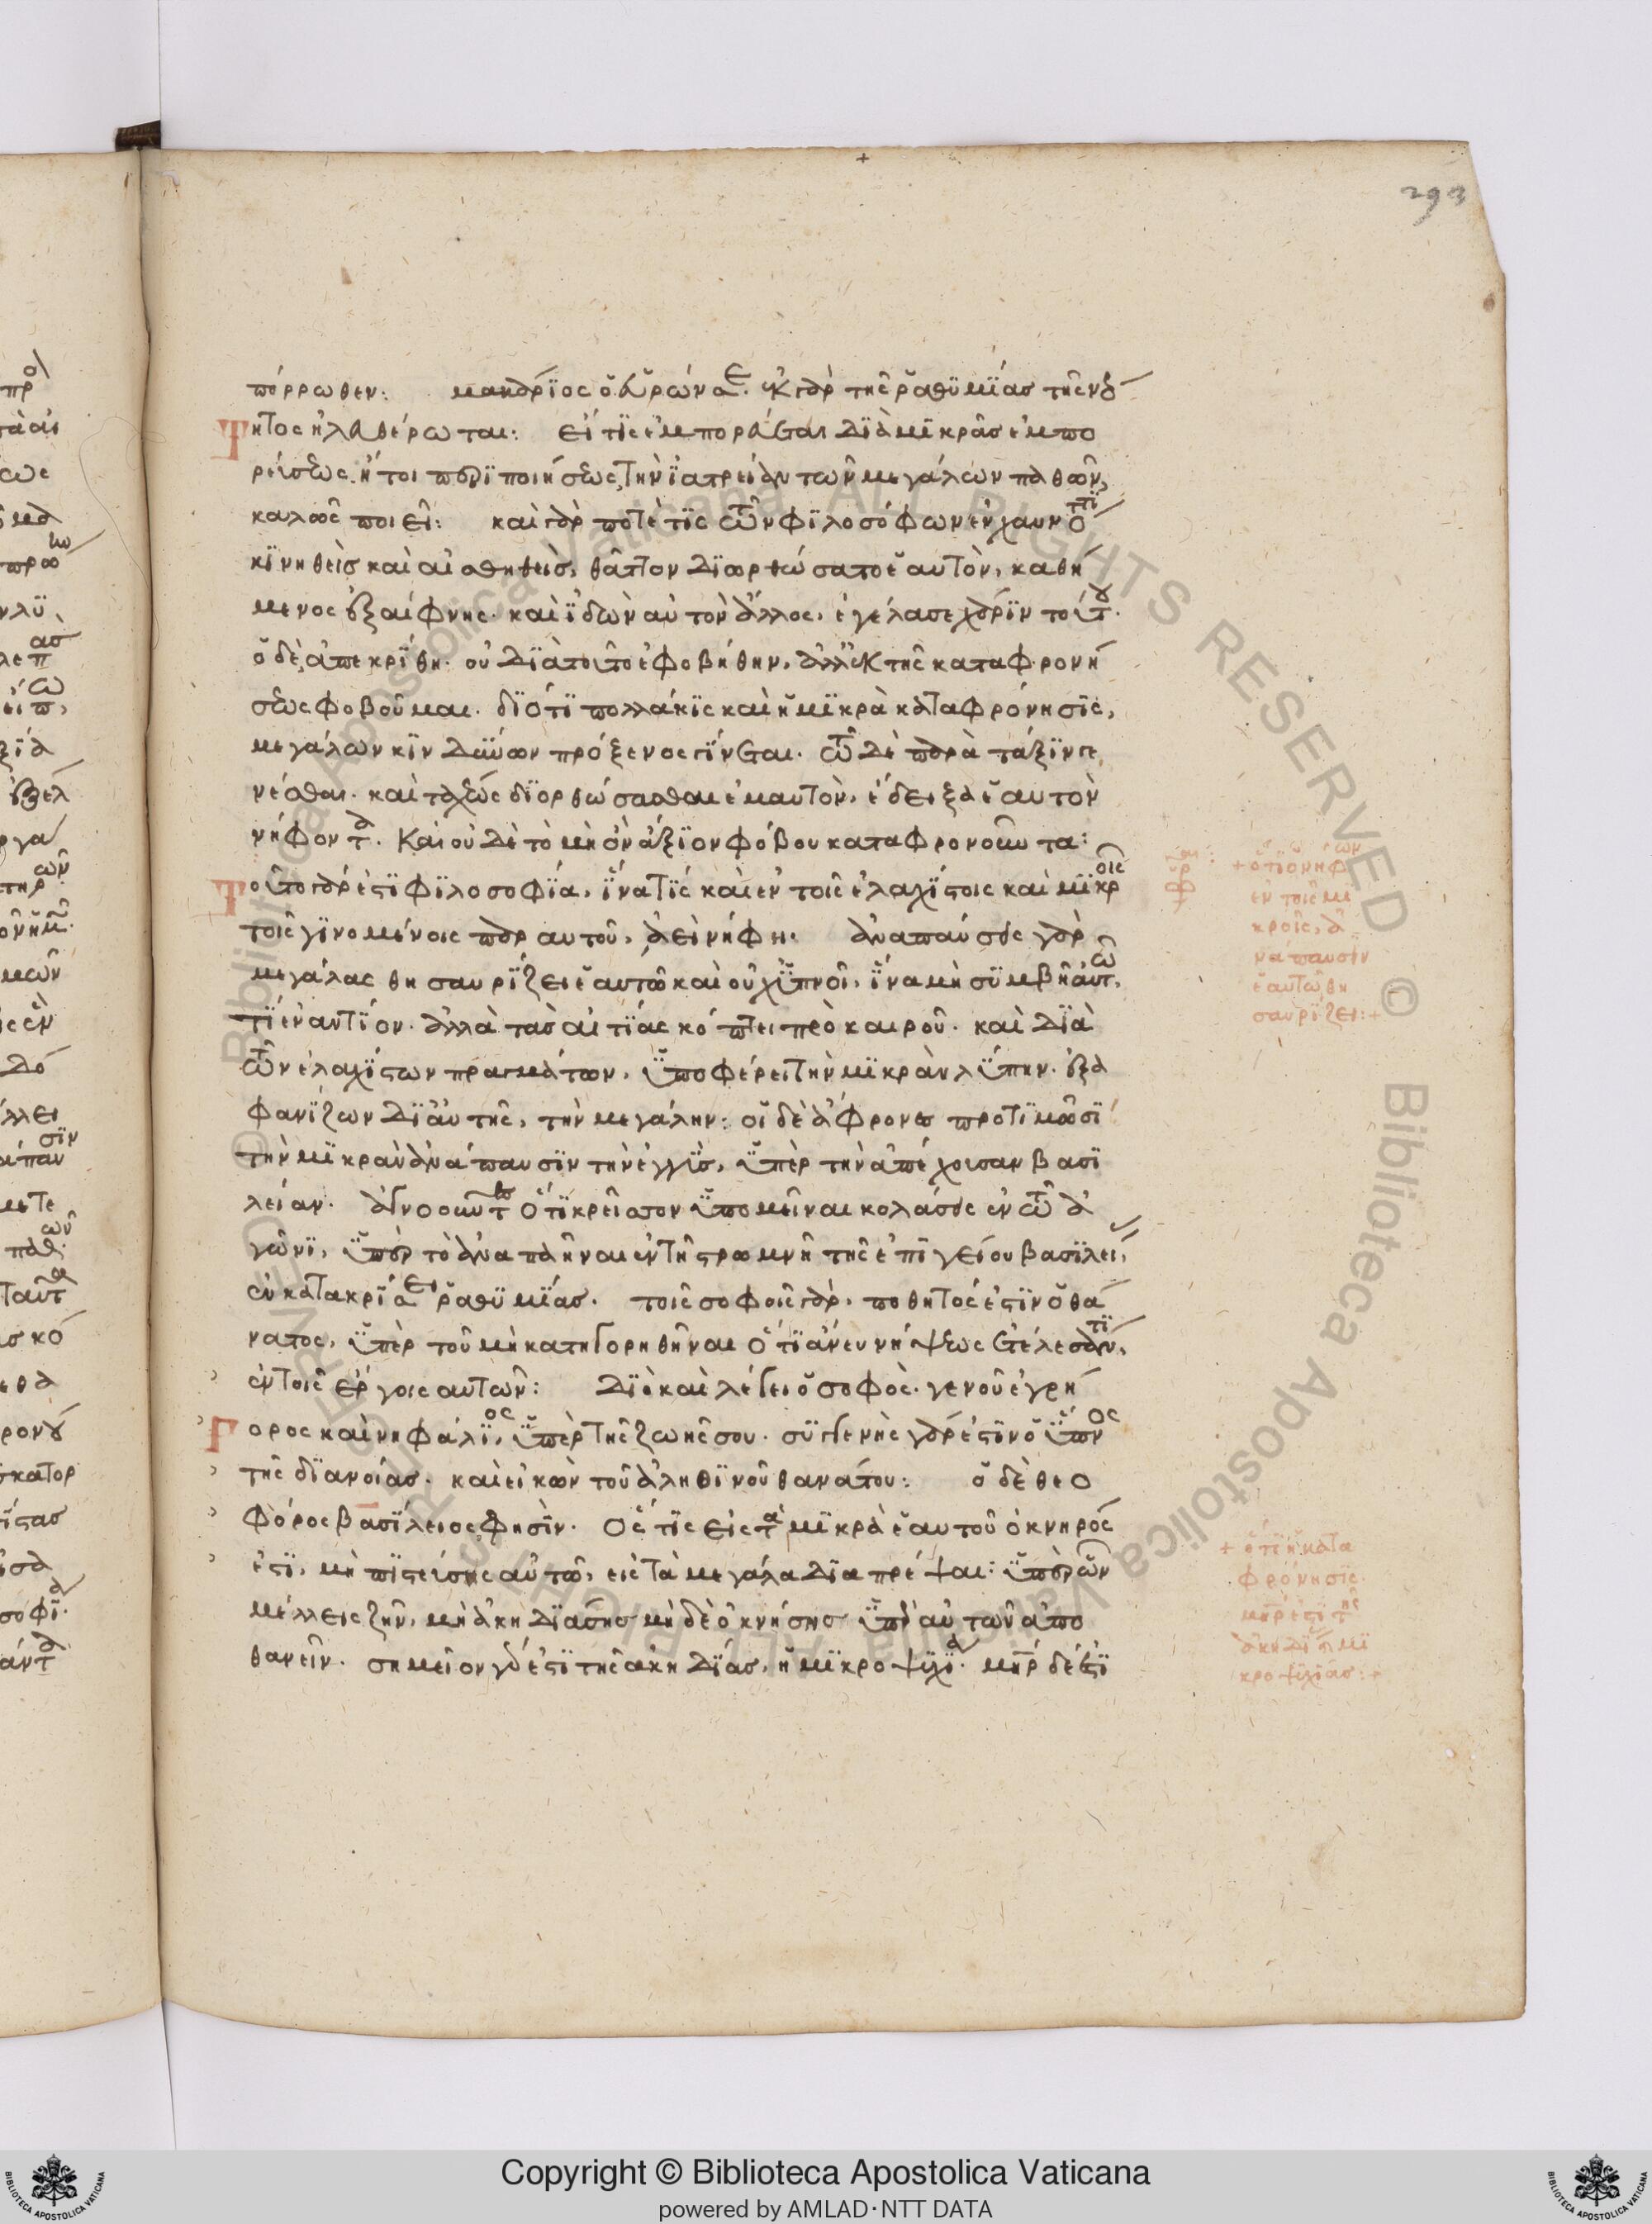 293
πόρρωθεν: μακάριος ὁ εὑρών σε. ἐκ γὰρ τῆς ῥαθυμίας τῆς νεό
τητος ἠλευθέρωται: εἴ τις ἐμπορεύεται διὰ μικρᾶς ἐμπο
ρεύσεως ἤτοι περιποιήσεως, τὴν ἰατρείαν τῶν μεγάλων παθῶν,
καλῶς ποιεῖ: καὶ γὰρ ποτέ τις τῶν φιλοσόφων ἐν χαυνότητι
κινηθεὶς καὶ αἰσθηθεὶς, θᾶττον διωρθώσατο ἑαυτὸν, καθή
μενος ἐξαίφνης. καὶ ἰδὼν αὐτὸν ἄλλος, ἐγέλασε χάριν τούτου.
ὁ δὲ, ἀπεκρίθη. οὐ διὰ τοῦτο ἐφοβήθην, ἀλλ' ἐκ τῆς καταφρονή
σεως φοβοῦμαι. διότι πολλάκις καὶ ἡ μικρὰ καταφρόνησις,
μεγάλων κινδύνων πρόξενος γίνεται. τῷ δὲ παρὰ τάξιν γε
νέσθαι. καὶ ταχέως διορθώσασθαι ἐμαυτὸν, ἔδειξα ἑαυτὸν
νήφοντα. καὶ οὐδὲ τὸ μὴ ὂν ἄξιον φόβου καταφρονοῦντα:
τοῦτο γάρ ἐστι φιλοσοφία, ἵνα τις καὶ ἐν τοῖς ἐλαχίστοις καὶ μικροῖς
τοῖς γινομένοις παρ αὐτοῦ, ἀεὶ νήφη. ἀναπαύσεις γὰρ
μεγάλας θησαυρίζει ἑαυτῶ καὶ οὐχ ὑπνοῖ, ἵνα μὴ συμβῆ αὐτῶ
τί ἐναντίον. ἀλλὰ τὰς αἰτίας κόπτει πρὸ καιροῦ. καὶ διὰ
τῶν ἐλαχίστων πραγμάτων, ὑποφέρει τὴν μικρὰν λύπην. ἐξα
φανίζων δι' αὐτῆς, τὴν μεγάλην: οἱ δὲ ἄφρονες προτιμῶσι
τὴν μικρὰν ἀνάπαυσιν τὴν ἐγγὺς, ὑπὲρ τὴν ἀπέχουσαν βασι
λείαν. ἀγνοοῦντες ὅτι κρεῖσσον ὑπομεῖναι κολάσεις ἐν τῶ ἀ
γῶνι, ὑπὲρ τὸ ἀναπαῆναι ἐν τῆ στρωμνῆ τῆς ἐπιγείου βασιλείας
ἐν κατακρίσει ῥαθυμίας. τοῖς σοφοῖς γὰρ, ποθητός ἐστιν ὁ θά
νατος, ὑπὲρ τοῦ μὴ κατηγορηθῆναι ὅτι ἄνευ νήψεως ἐτέλεσάν τι
ἐν τοῖς ἔργοις αὐτῶν: διὸ καὶ λέγει ὁ σοφὸς. γενοῦ ἐγρή
γορος καὶ νηφάλιος, ὑπὲρ τῆς ζωῆς σου. συγγενὴς γάρ ἐστιν ὁ ὕπνος
τῆς διανοίας. καὶ εἰκὼν τοῦ ἀληθινοῦ θανάτου: ὁ δὲ θεο
φόρος βασίλειος φησίν. ὅστις εἰς τὰ μικρὰ ἑαυτοῦ ὀκνηρός
ἐστι, μὴ πιστεύσης αὐτῶ, εἰς τὰ μεγάλα διαπρέψαι: ὑπὲρ ὧν
μέλλεις ζῆν, μὴ ἀκηδιάσης μὴ δὲ ὀκνήσης ὑπὲρ αὐτῶν ἀπο
θανεῖν. σημεῖον γάρ ἐστι τῆς ἀκηδίας, ἡ μικροψυχία. μήτηρ δέ ἐστι
+ ὅτι ὁ νήφων
ἐν τοῖς μι
κροῖς, ἀ
νάπαυσιν
ἑαυτῶ θη
σαυρίζει: +
+ ὅτι ἡ κατα
φρόνησις
μήτηρ ἐστὶ τῆς
ἀκηδίας
κροψυχίας: +
Copyright © Biblioteca Apostolica Vaticana
powered by AMLAD·NTT DATA